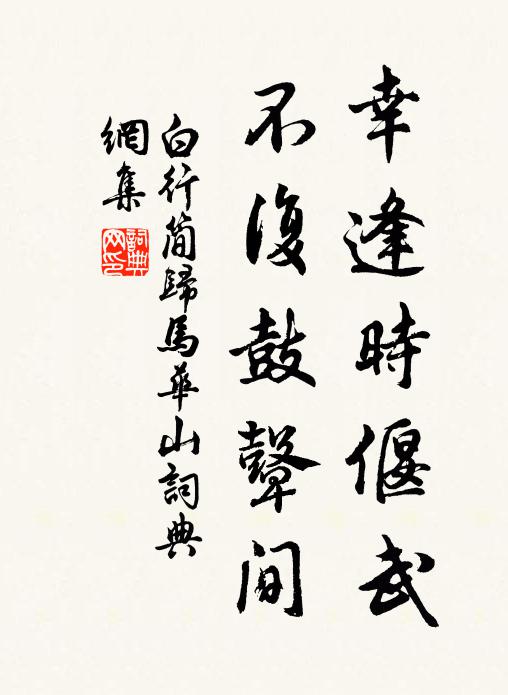 幸逢時偃武
不復鼓鼙間
白行簡歸馬華山詞典
網集
詞典
网印